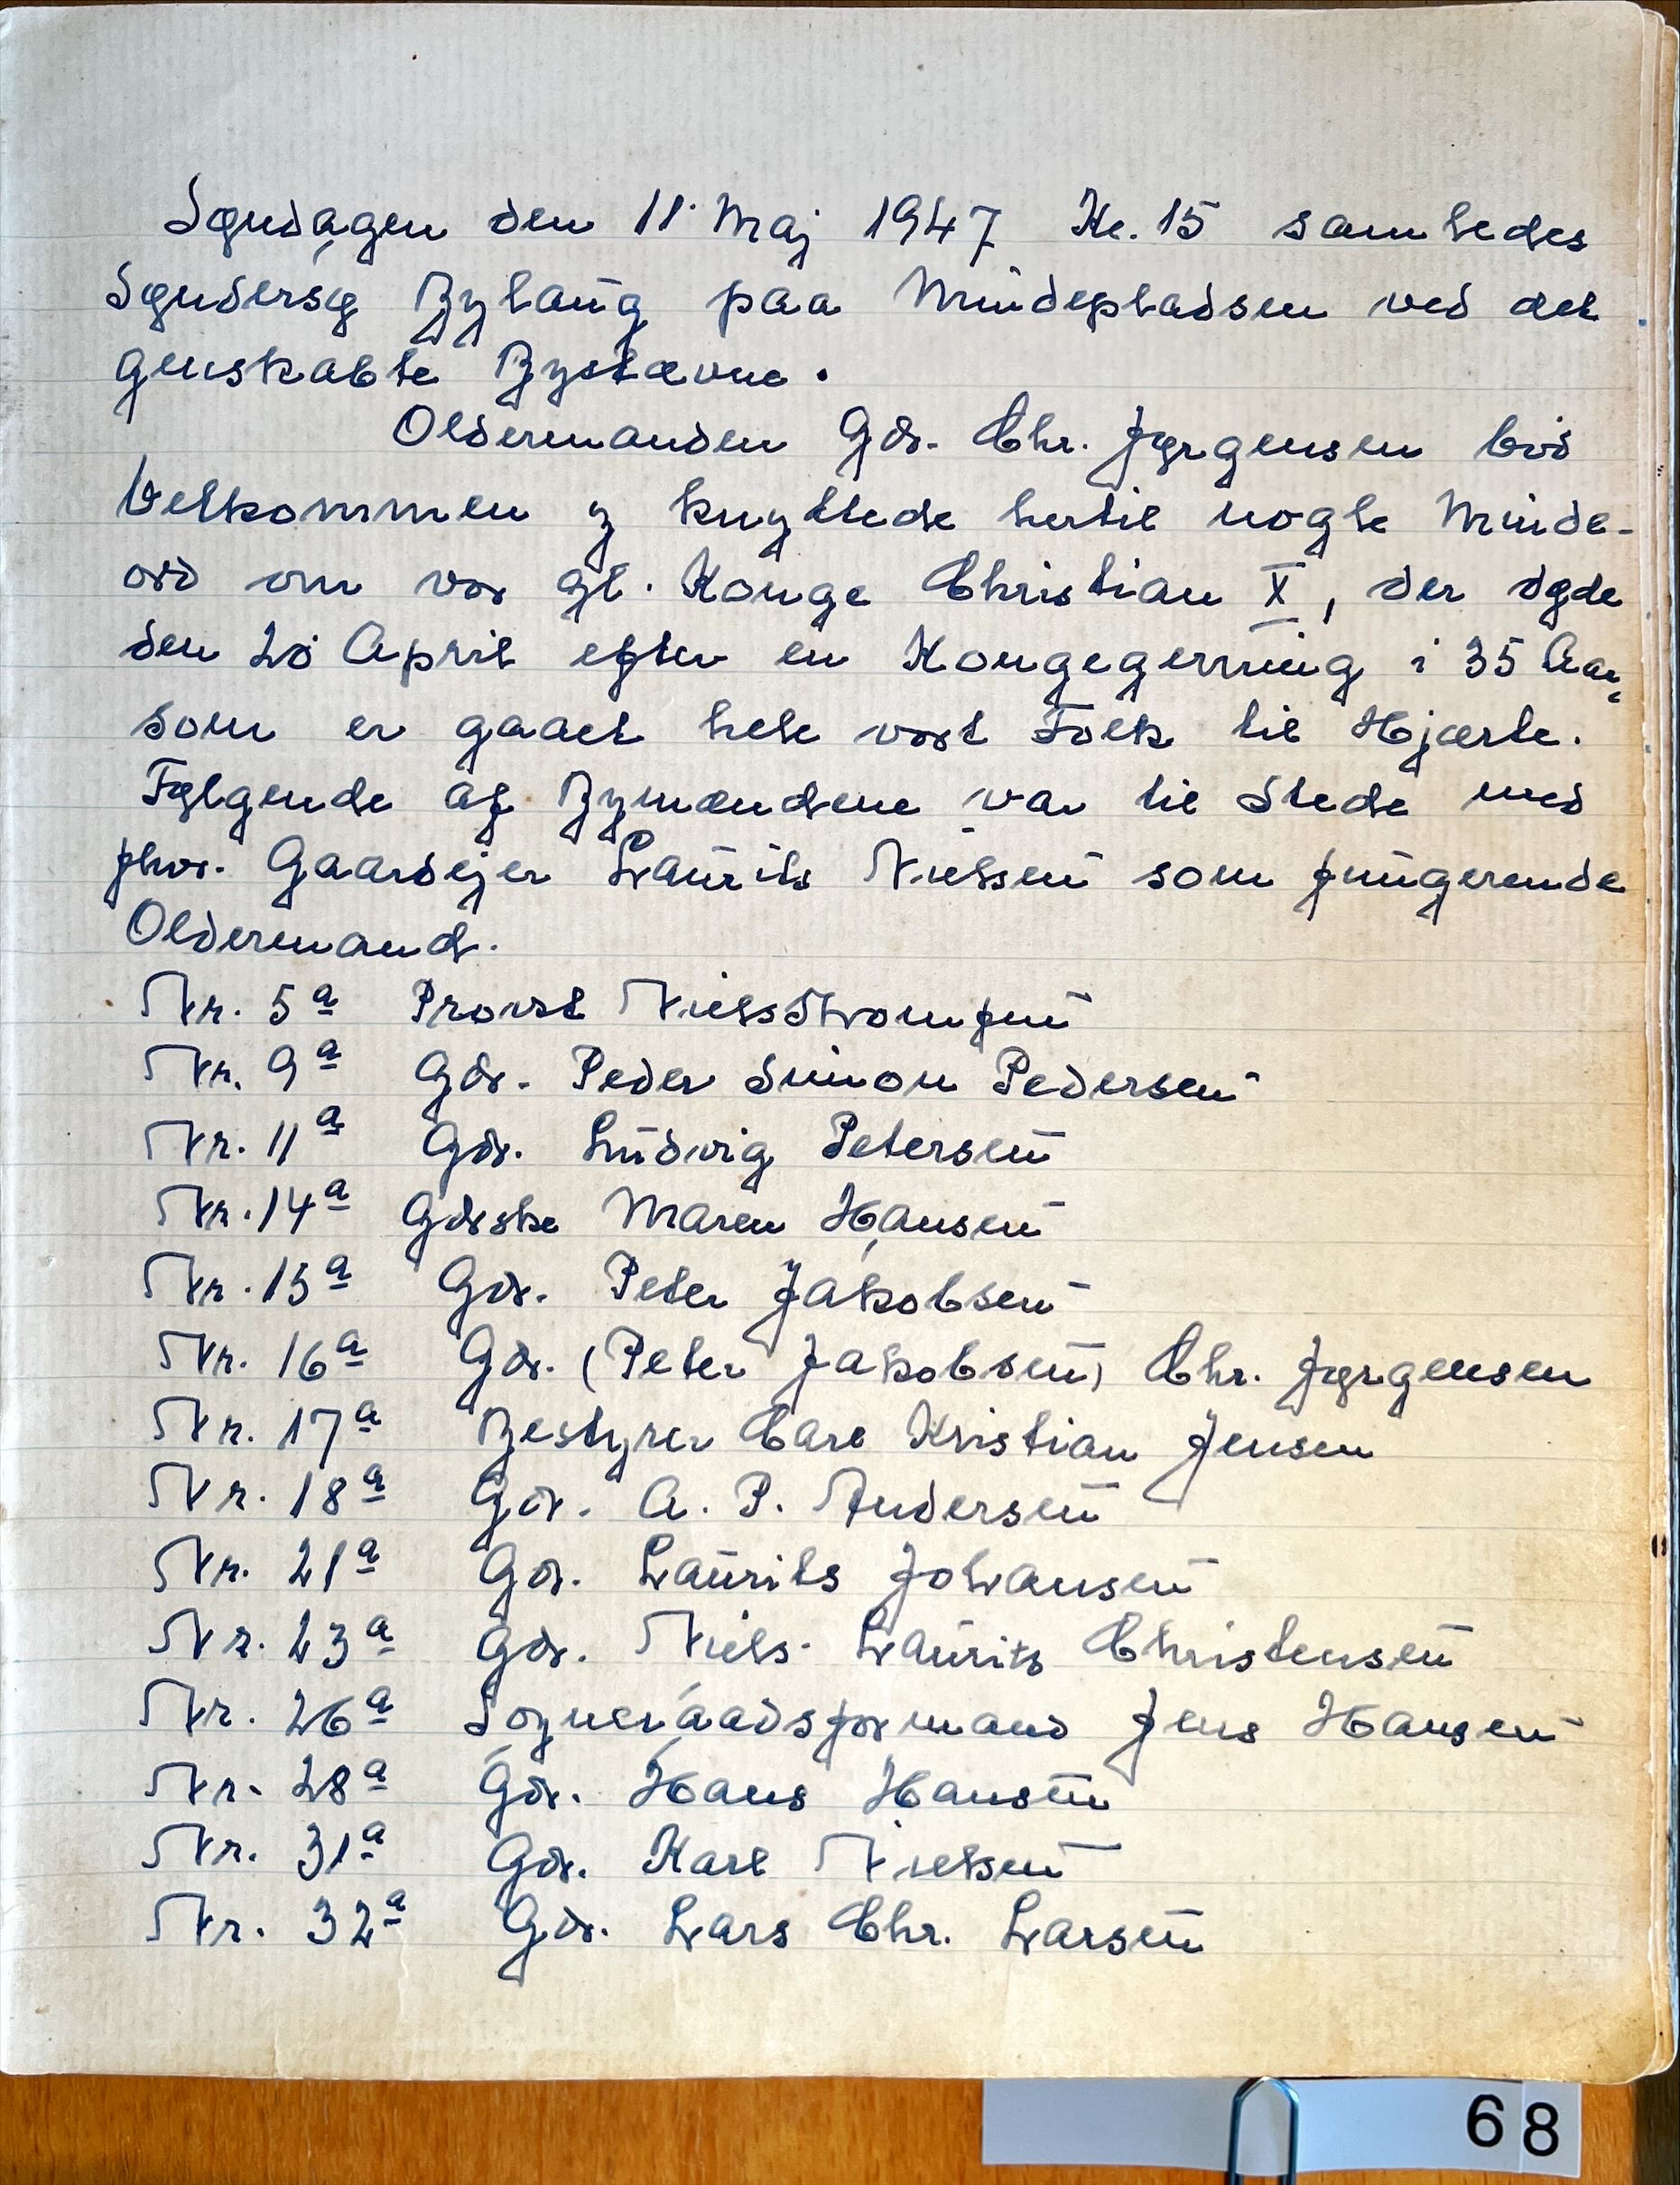 Søndagen den 11. Maj 1947 Kl. 15 samledes
Søndersø Bylaug paa Mindepladsen ved det
genskabte Bystævne.
Oldermanden Gdr. Chr. Jørgensen bød
Velkommen og knyttede hertil nogle Minde-
ord om vor gl. Konge Christian X, der døde
den 20 April efter en Kongegerning i 35 Aar,
som er gaaet hele vort Folk til Hjærte.
Følgende af Bymændene var til Stede med
fhv. Gaardejer Laurits Nielsen som fungerende
Oldermand.
Nr. 5a Provst Niels Stromfun
Nr. 9a Gdr. Peder Simon Pedersen
Nr. 11a Gdr. Ludvig Petersen
Nr. 14a Gdrske Maren Hansen
Nr. 15a Gdr. Peter Jakobsen
Nr. 16a Gdr. (Peter Jakobsen) Chr. Jørgensen
Nr. 17a Bestyrer Carl Kristian Jensen
Nr. 18a Gdr. A. P. Andersen
Nr. 21a Gdr. Laurits Johansen
Nr. 23a Gdr. Niels Laurits Christensen
Nr. 26a Sogneraadsformand Jens Hansen
Nr. 28a Gdr. Hans Hansen
Nr. 31a Gdr. Karl Nielsen
Nr. 32a Gdr. Lars Chr. Larsen
68